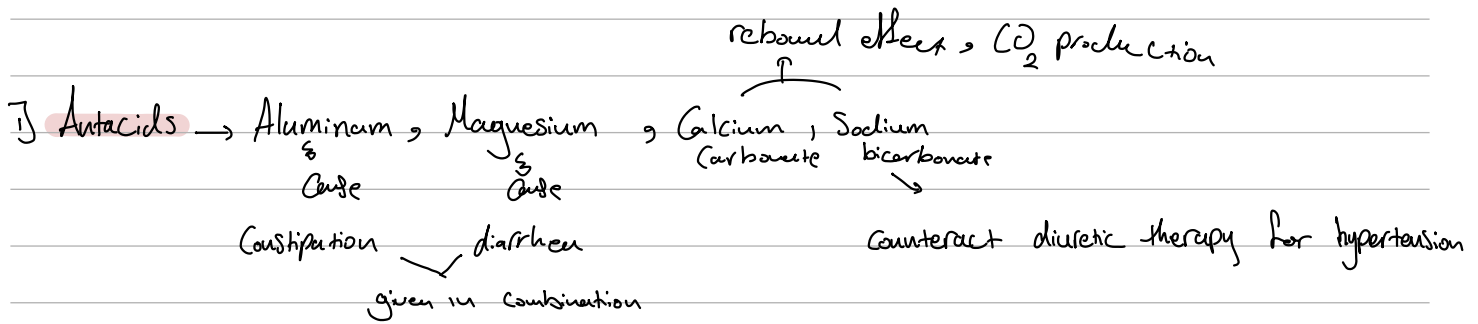 rebound effect, CO2 production
1] Antacids → Aluminum, Magnesium, Calcium, Sodium
Carbonate bicarbonate
Cause Cause
Constipation diarrhea counteract diuretic therapy for hypertension
given in combination